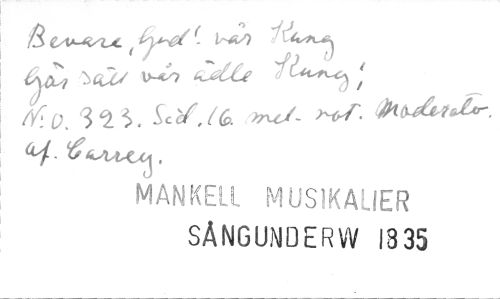 Bevara, Gud! vår Kung
Gör säll vår ädle Kung!
N:o. 323. Sid. 16. mel. not. Moderato.
af. Carrey.
MANKELL MUSIKALIER
SÅNGUNDERW 1835